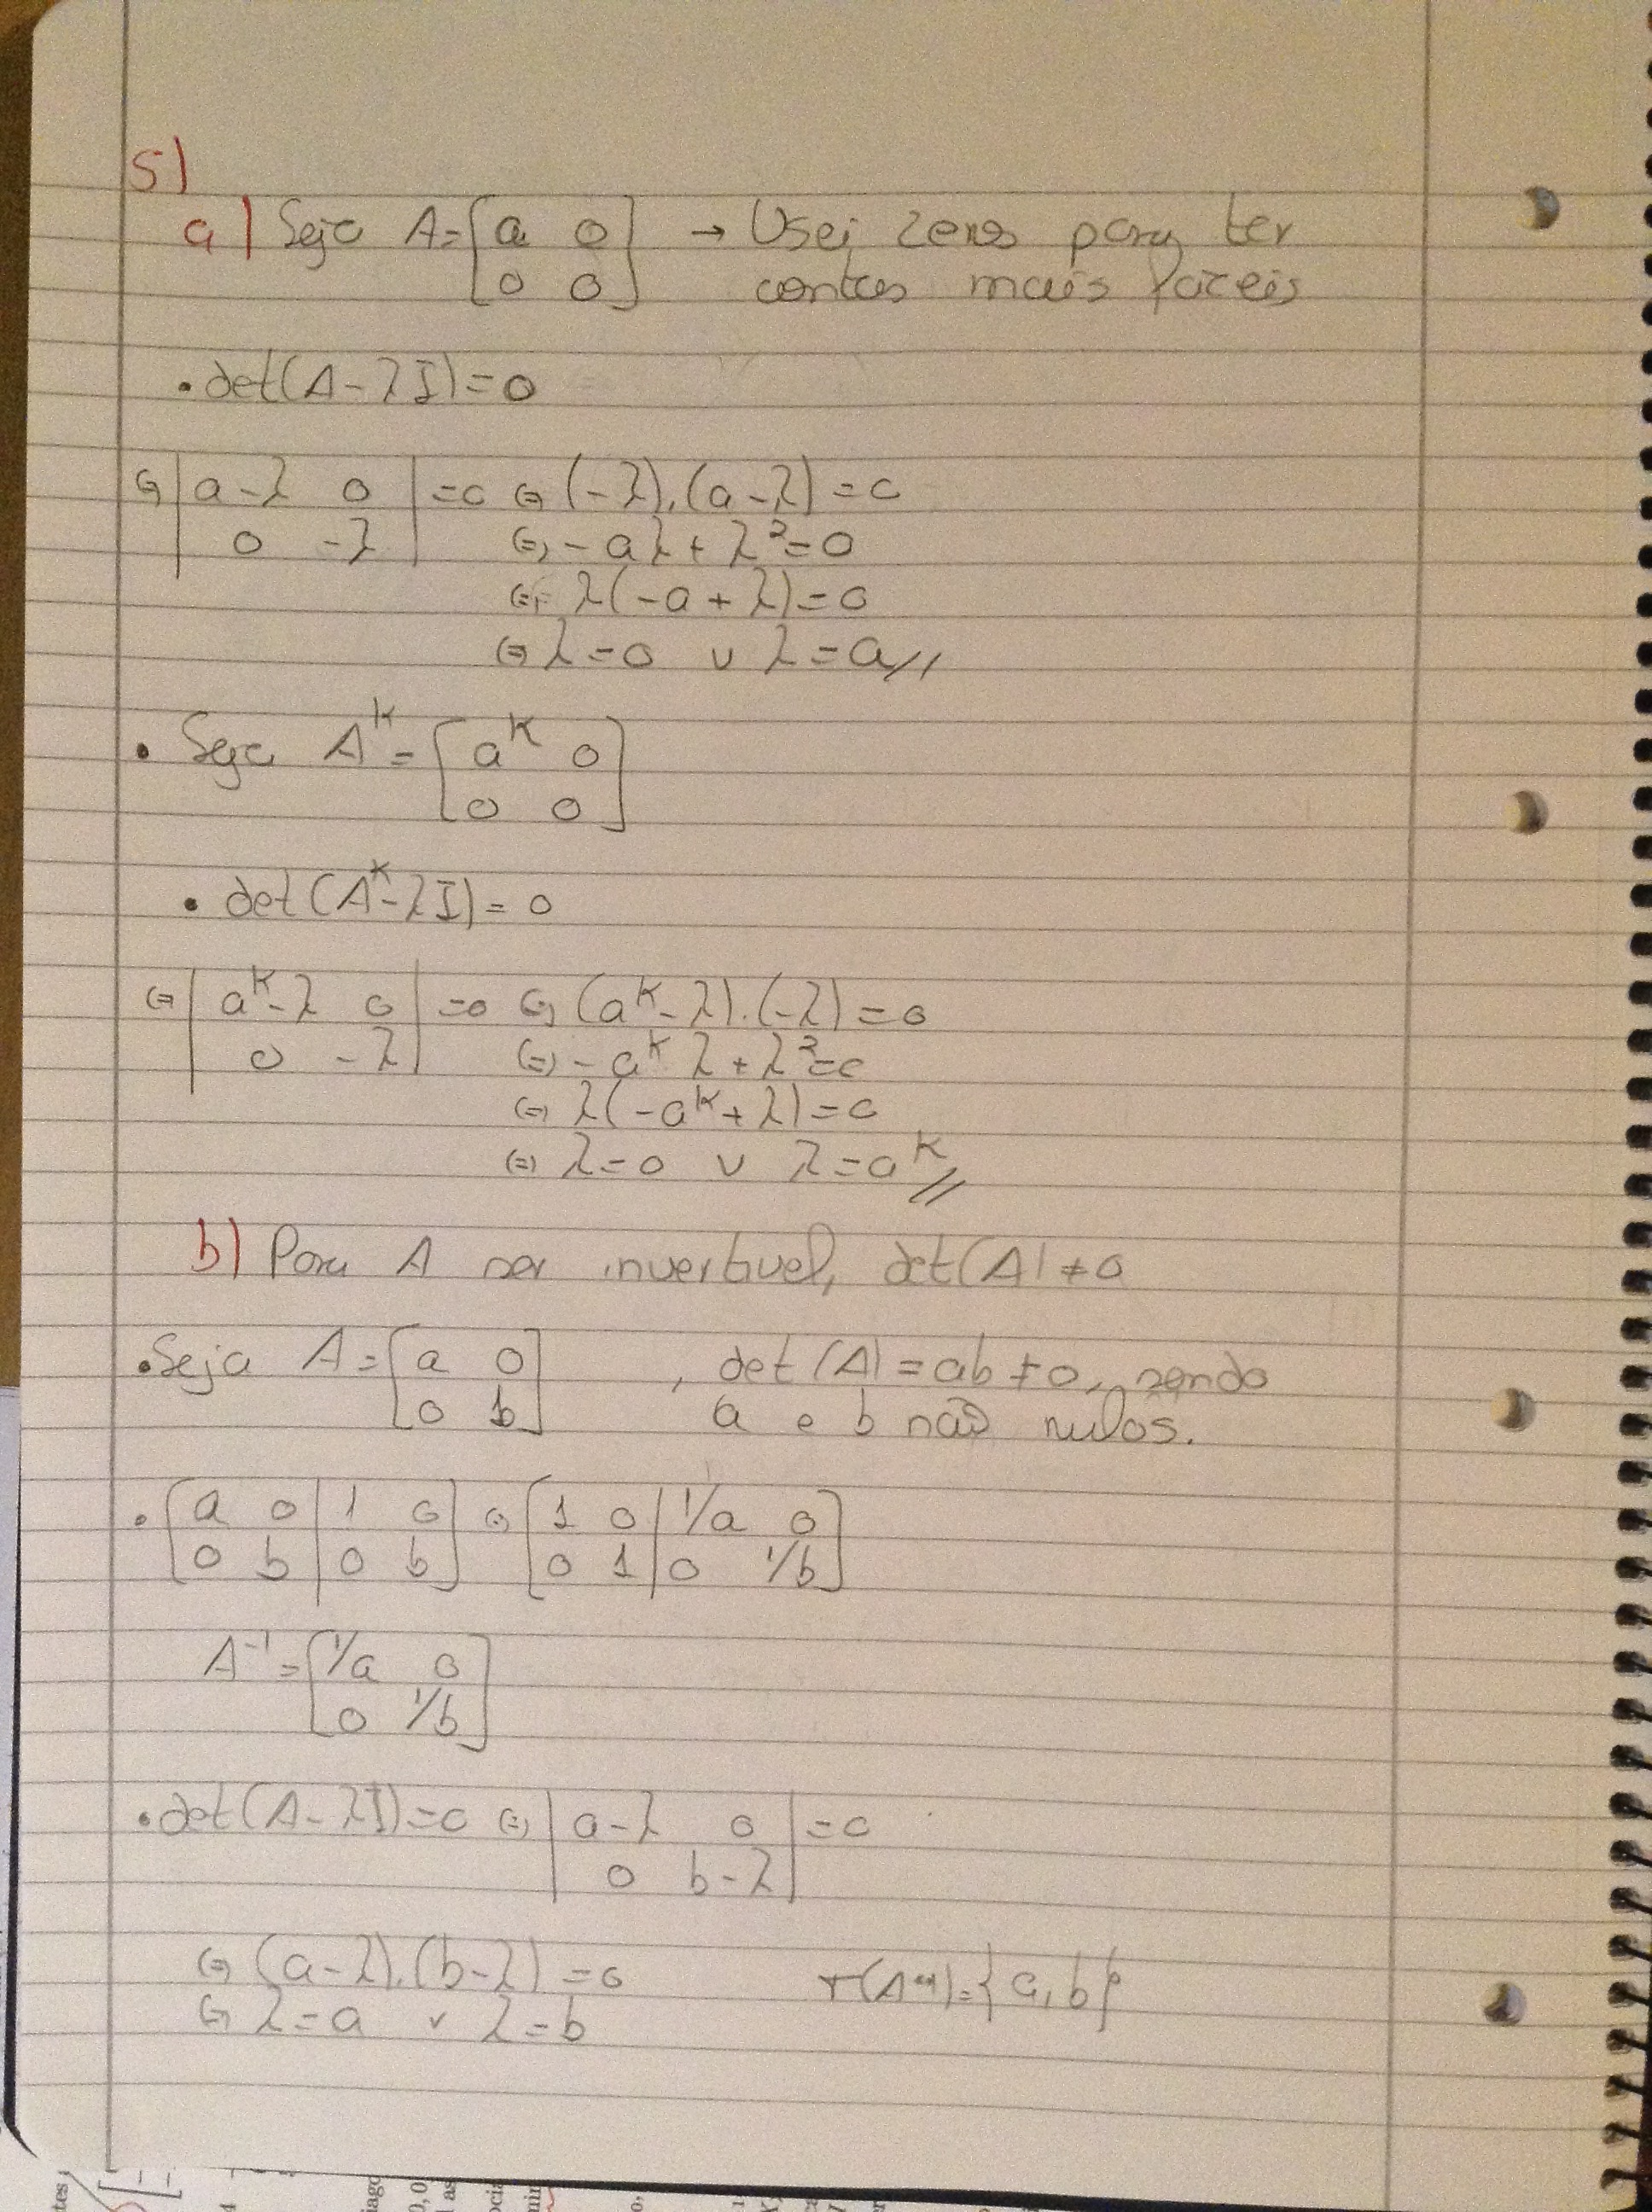 5)
a) Seja A=[a 0 → Usei zeros para ter
0 0] contas mais fáceis
• det(A-λI)=0
⇔ |a-λ 0| =0 ⇔ (-λ).(a-λ)=0
0 -λ ⇔ -aλ+λ²=0
⇔ λ(-a+λ)=0
⇔ λ=0 ∨ λ=a//
• Seja Aᵏ=[aᵏ 0
0 0]
• det(Aᵏ-λI)=0
⇔ |aᵏ-λ 0| =0 ⇔ (aᵏ-λ).(-λ)=0
0 -λ ⇔ -aᵏλ+λ²=0
⇔ λ(-aᵏ+λ)=0
⇔ λ=0 ∨ λ=aᵏ//
b) Para A ser invertivel, det(A)≠0
• Seja A=[a 0 , det(A)=ab≠0, sendo
0 b] a e b não nulos.
• [a 0|1 0] ⇔ [1 0|1/a 0]
[0 b|0 b] [0 1|0 1/b]
A⁻¹=[1/a 0
0 1/b]
• det(A-λI)=0 ⇔ |a-λ 0| =0
0 b-λ
⇔ (a-λ).(b-λ)=0
⇔ λ=a ∨ λ=b
={a,b}